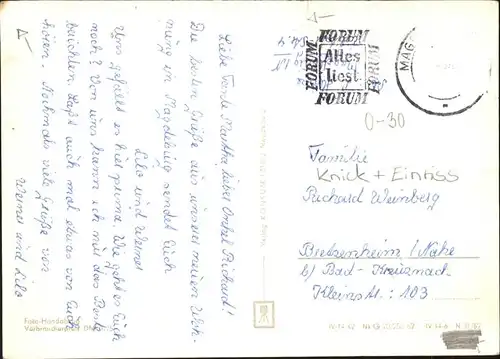 Liebe Tante Martha, lieber Onkel Richard!
Die besten Grüße aus unserer neuen Woh-
nung in Magdeburg sendet Euch
Lilo und Werner
Uns gefällt es hier prima. Wie geht es Euch
noch? Von uns kann ich nur das Beste
berichten. Laßt auch mal etwas von Euch
hören. Nochmals viele Grüße von
Werner und Lilo
FORUM
FORUM
Alles
liest
FORUM
FORUM
MAG
0-30
Familie
Knick + Einriss
Richard Weinberg
Bretzenheim / Nahe
b/ Bad-Kreuznach
Kleinstr.: 103
Foto-Handel